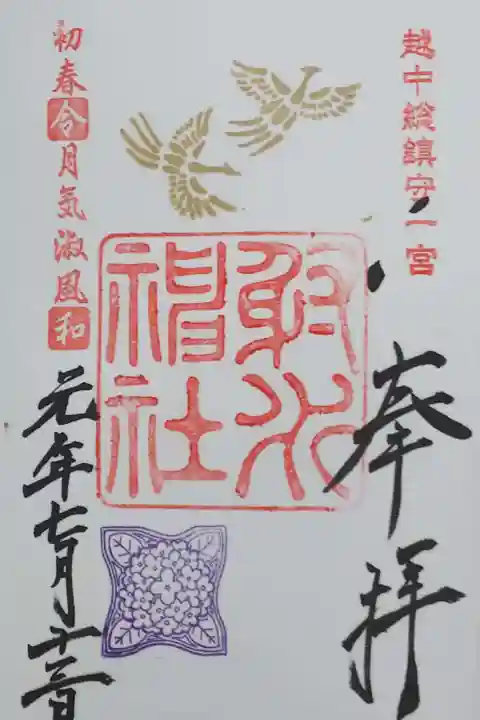 越中総鎮守一宮
奉拝
射水神社
初春令月気淑風和
元年七月十三日